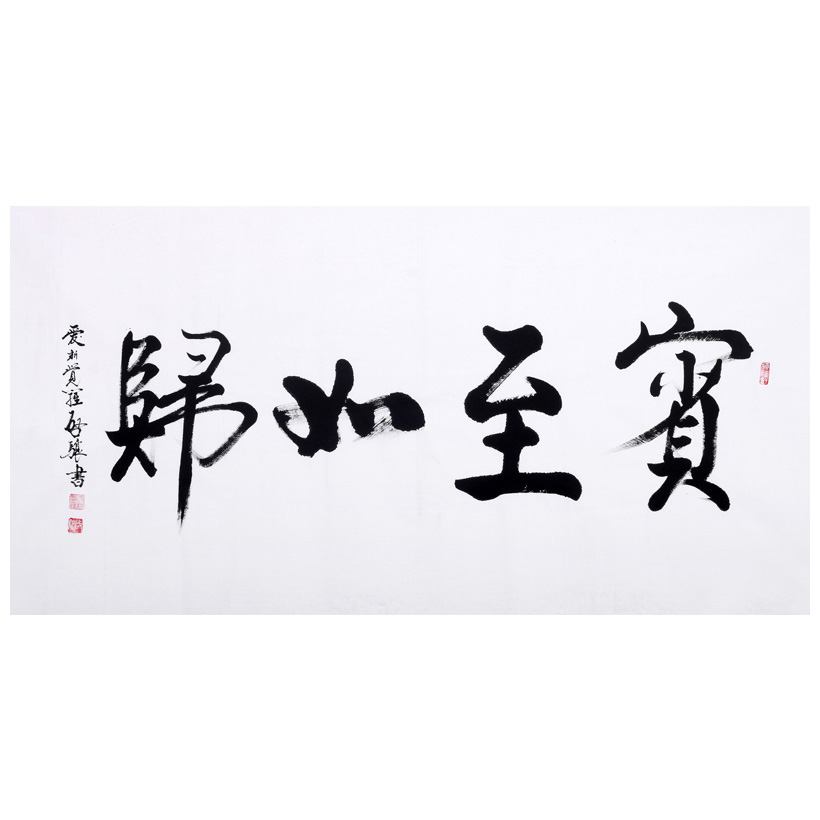 賓至如歸
愛新覺羅啟驤書